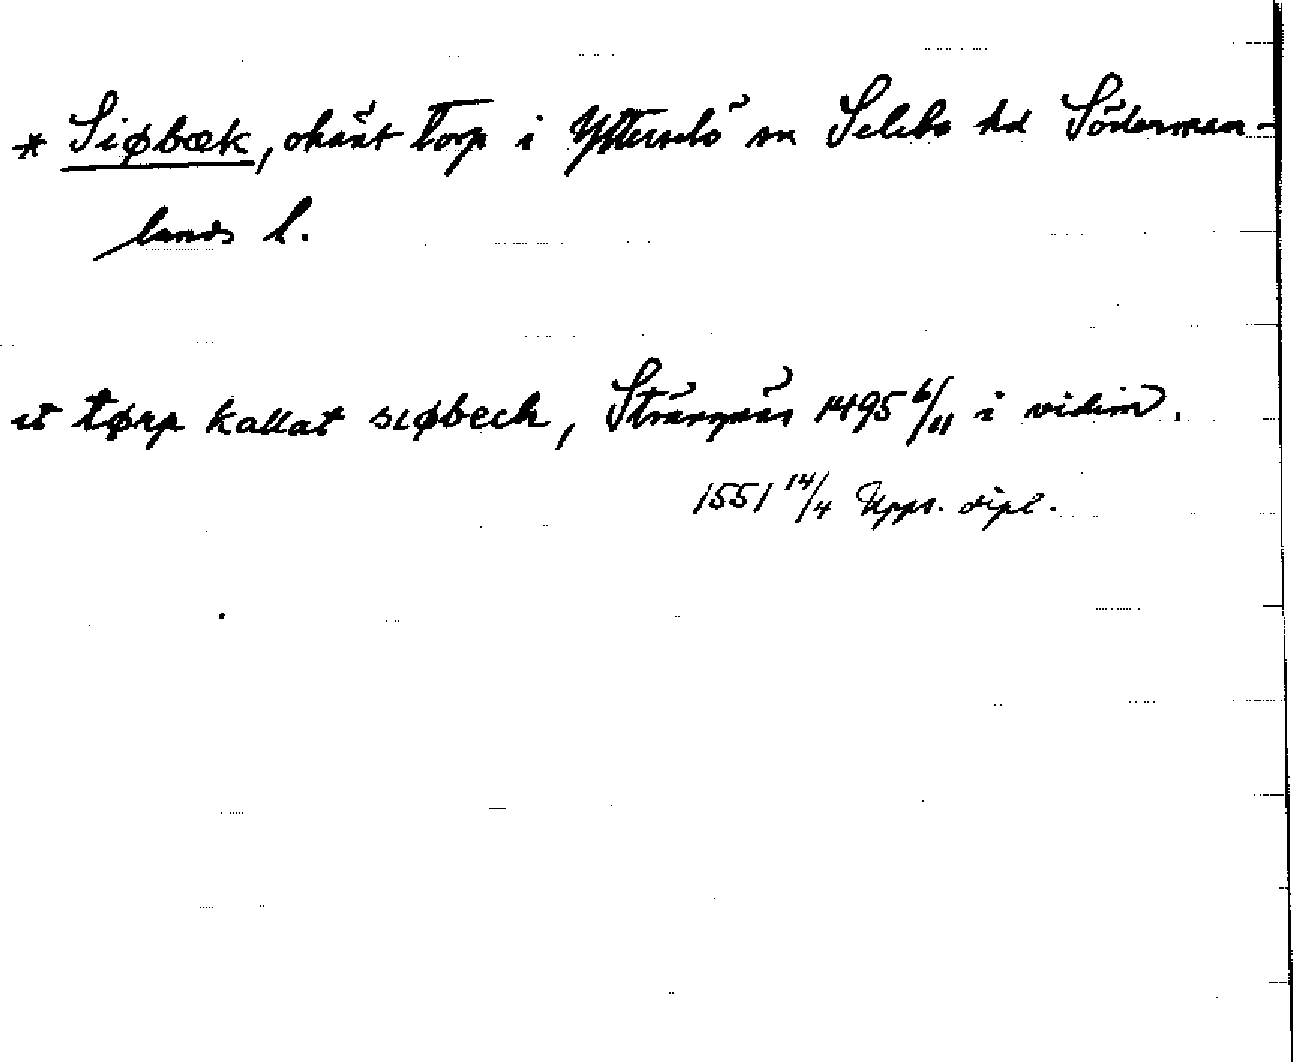 * Siøbæk, okänt torp i Ytterselö sn Selebo hd Söderman-
lands l.
it tørp kallat siøbech, Strängnäs 1495 6/11 i vidim.
1551 14/4 Upps. dipl.